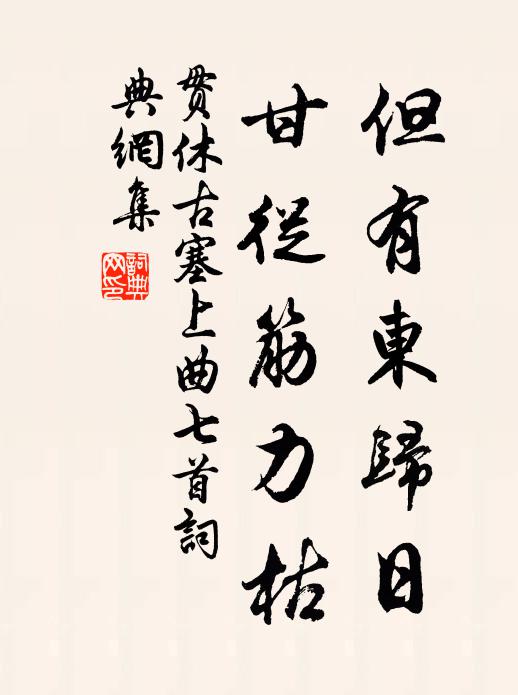 但有東歸日
甘從筋力枯
貫休古塞上曲七首詞
典網集
詞典
网印